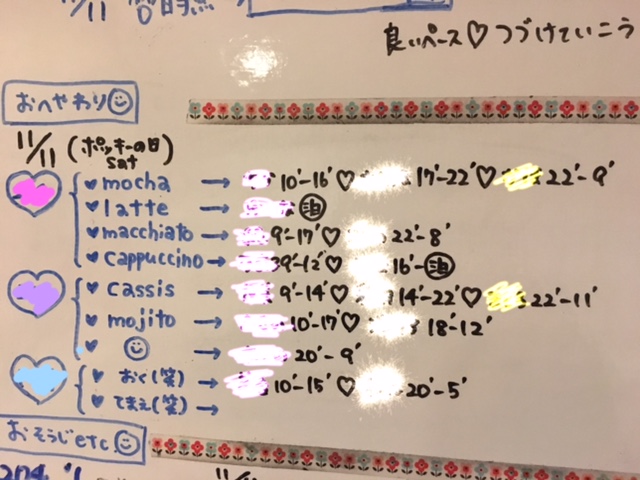 11/11
良いペース♡つづけていこう
おへやわり☺
11/11 (ポッキーの日) sat
♥mocha → 10'-16'♡ 17'-22'♡ 22'-9'
♥latte → ㊟
♥macchiato → 9'-17'♡ 22'-8'
♥cappuccino → 9'-12'♡ 16'-
♥cassis → 9'-14'♡ 14'-22'♡ 22'-11'
♥mojito → 10'-17'♡ 18'-12'
♥☺ → 20'-9'
♥おく(笑) → 10'-15'♡ 20'-5'
♥てまえ(笑) →
おそうじetc☺
11/